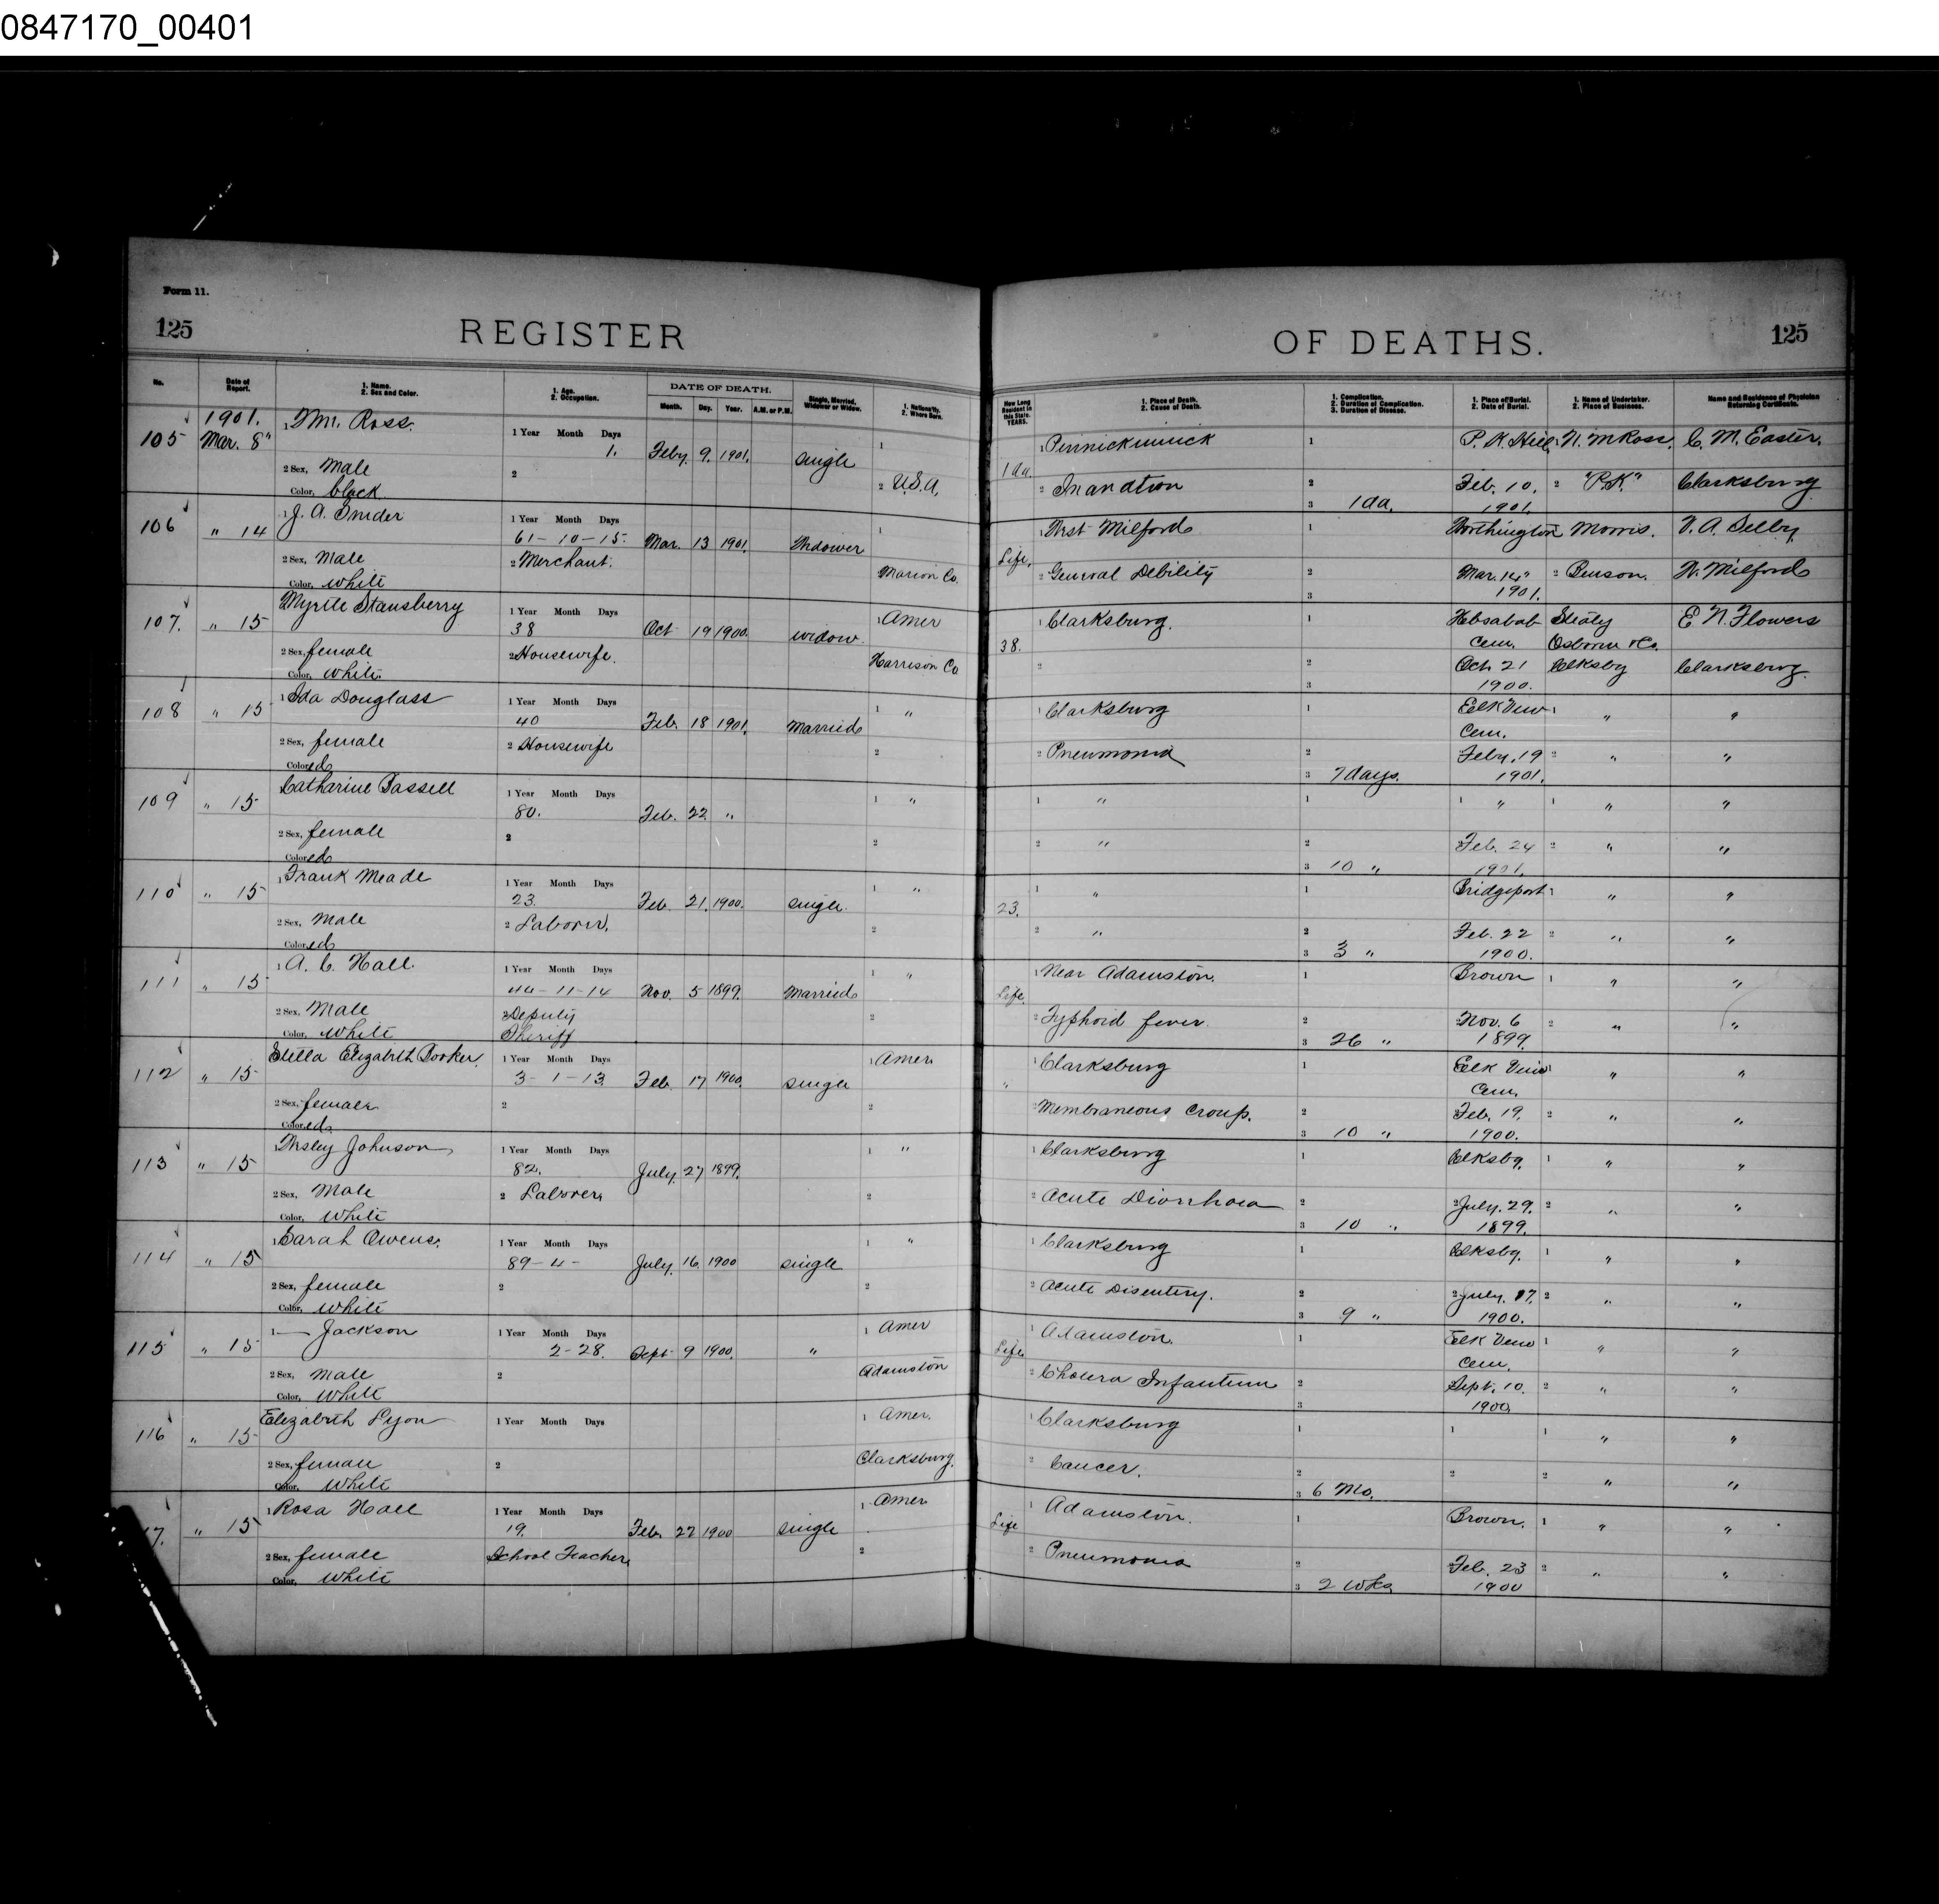 0847170_00401
Form 11.
125 REGISTER
OF DEATHS. 125
No.
Date of Report.
1. Name. 2. Sex and Color.
1. Age. 2. Occupation.
DATE OF DEATH.
Month. Day. Year. A.M. or P.M.
Single, Married, Widower or Widow.
1. Nationality. 2. Where Born.
How Long Resident in this State. YEARS.
1. Place of Death. 2. Cause of Death.
1. Complication. 2. Duration of Complication. 3. Duration of Disease.
1. Place of Burial. 2. Date of Burial.
1. Name of Undertaker. 2. Place of Business.
Name and Residence of Physician Returning Certificate.
1901.
105 Mar. 8" 1 Wm. Ross. 1 Year Month Days 1. Feby. 9. 1901. single 1 Pinnickinnick 1 P. K. Hill N. M Ross. C. M. Easter.
2 Sex, Male 2 2 U.S.A. 1 da. 2 Inanation 2 Feb. 10. 2 "P.K." Clarksburg
Color, black 3 1 da. 1901.
106 " 14 1 J. A. Snider 1 Year Month Days 61-10-15- Mar. 13 1901. Widower 1 West Milford 1 Worthington Morris. V. A. Selby,
2 Sex, Male 2 Merchant. Marion Co. Life. 2 General Debility 2 Mar. 14" 2 Benson. W. Milford
Color, White 3 1901.
107. " 15 Myrtle Stansberry 1 Year Month Days 38 Oct 19 1900. widow. 1 Amer 1 Clarksburg. 1 Cem. Osborn & Co. E N. Flowers
2 Sex, female 2 Housewife. Harrison Co 38. 2 2 Oct. 21 Clksbg Clarksburg.
Color, White. 3 1900.
108 " 15 1 Ida Douglass 1 Year Month Days 40 Feb. 18 1901. Married 1 " 1 Clarksburg 1 Elk View Cem. 1 " "
2 Sex, female 2 Housewife 2 2 Pneumonia 2 Feby. 19 2 " "
Colored 3 7 days. 1901.
109 " 15 Catharine Bassell 1 Year Month Days 80. Feb. 22 " 1 " 1 " 1 1 " 1 " "
2 Sex, female 2 2 2 " 2 Feb. 24 2 " "
Colored 3 10 " 1901.
110 " 15 1 Frank Meade 1 Year Month Days 23. Feb. 21. 1900. single. 1 " 1 " 1 Bridgeport 1 " "
2 Sex, Male 2 Laborer. 2 23. 2 " 2 Feb. 22 2 " "
Colored 3 3 " 1900.
111 " 15 1 A. C. Hall. 1 Year Month Days 44-11-14 Nov. 5 1899. Married 1 " 1 Near Adamston. 1 Brown 1 " "
2 Sex, Male 2 Deputy Sheriff 2 Life. 2 Typhoid fever. 2 2 Nov. 6 2 " "
Color, White 3 26 " 1899.
112 " 15 Stella Elizabeth Booker. 1 Year Month Days 3-1-13. Feb. 17 1900. single 1 Amer. 1 Clarksburg 1 Elk View Cem. 1 " "
2 Sex, female 2 2 " 2 Membraneous Croup. 2 Feb. 19. 2 " "
Colored. 3 10 " 1900.
113 " 15 1 Wesley Johnson 1 Year Month Days 82. July 27 1899. 1 " 1 Clarksburg 1 Clksbg. 1 " "
2 Sex, Male 2 Laborer. 2 2 Acute Diorrhoea 2 2 July. 29. 2 " "
Color, White 3 10 " 1899.
114 " 15 1 Sarah Owens. 1 Year Month Days 89-4- July. 16. 1900 single 1 " 1 Clarksburg 1 Clksbg. 1 " "
2 Sex, female 2 2 2 Acute Disentery. 2 2 July. 17. 2 " "
Color, White 3 9 " 1900.
115 " 15 1 — Jackson 1 Year Month Days 2-28. Sept 9 1900. " 1 Amer 1 Adamston. 1 Elk View Cem. 1 " "
2 Sex, Male 2 Adamston Life 2 Cholera Infantum 2 Sept. 10. 2 " "
Color, White 3 1900.
116 " 15 Elizabeth Lyon 1 Year Month Days 1 Amer. 1 Clarksburg 1 1 1 " "
2 Sex, female 2 Clarksburg. 2 Cancer. 2 2 2 " "
Color, White 3 6 Mo.
17. " 15 1 Rosa Hall 1 Year Month Days 19. Feb. 22 1900 single 1 Amer 1 Adamston. 1 Brown. 1 " "
2 Sex, female School Teacher. 2 Life 2 Pneumonia 2 Feb. 23 2 " "
Color, White 3 2 wks. 1900